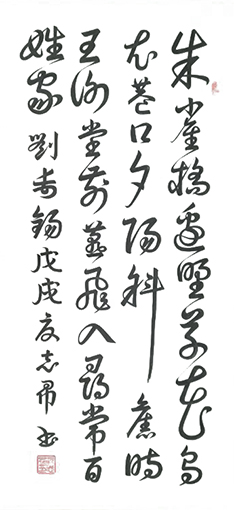 朱雀橋邊野草花烏
衣巷口夕陽斜舊時
王謝堂前燕飛入尋常百
姓家劉禹錫戊戌夏志昂书